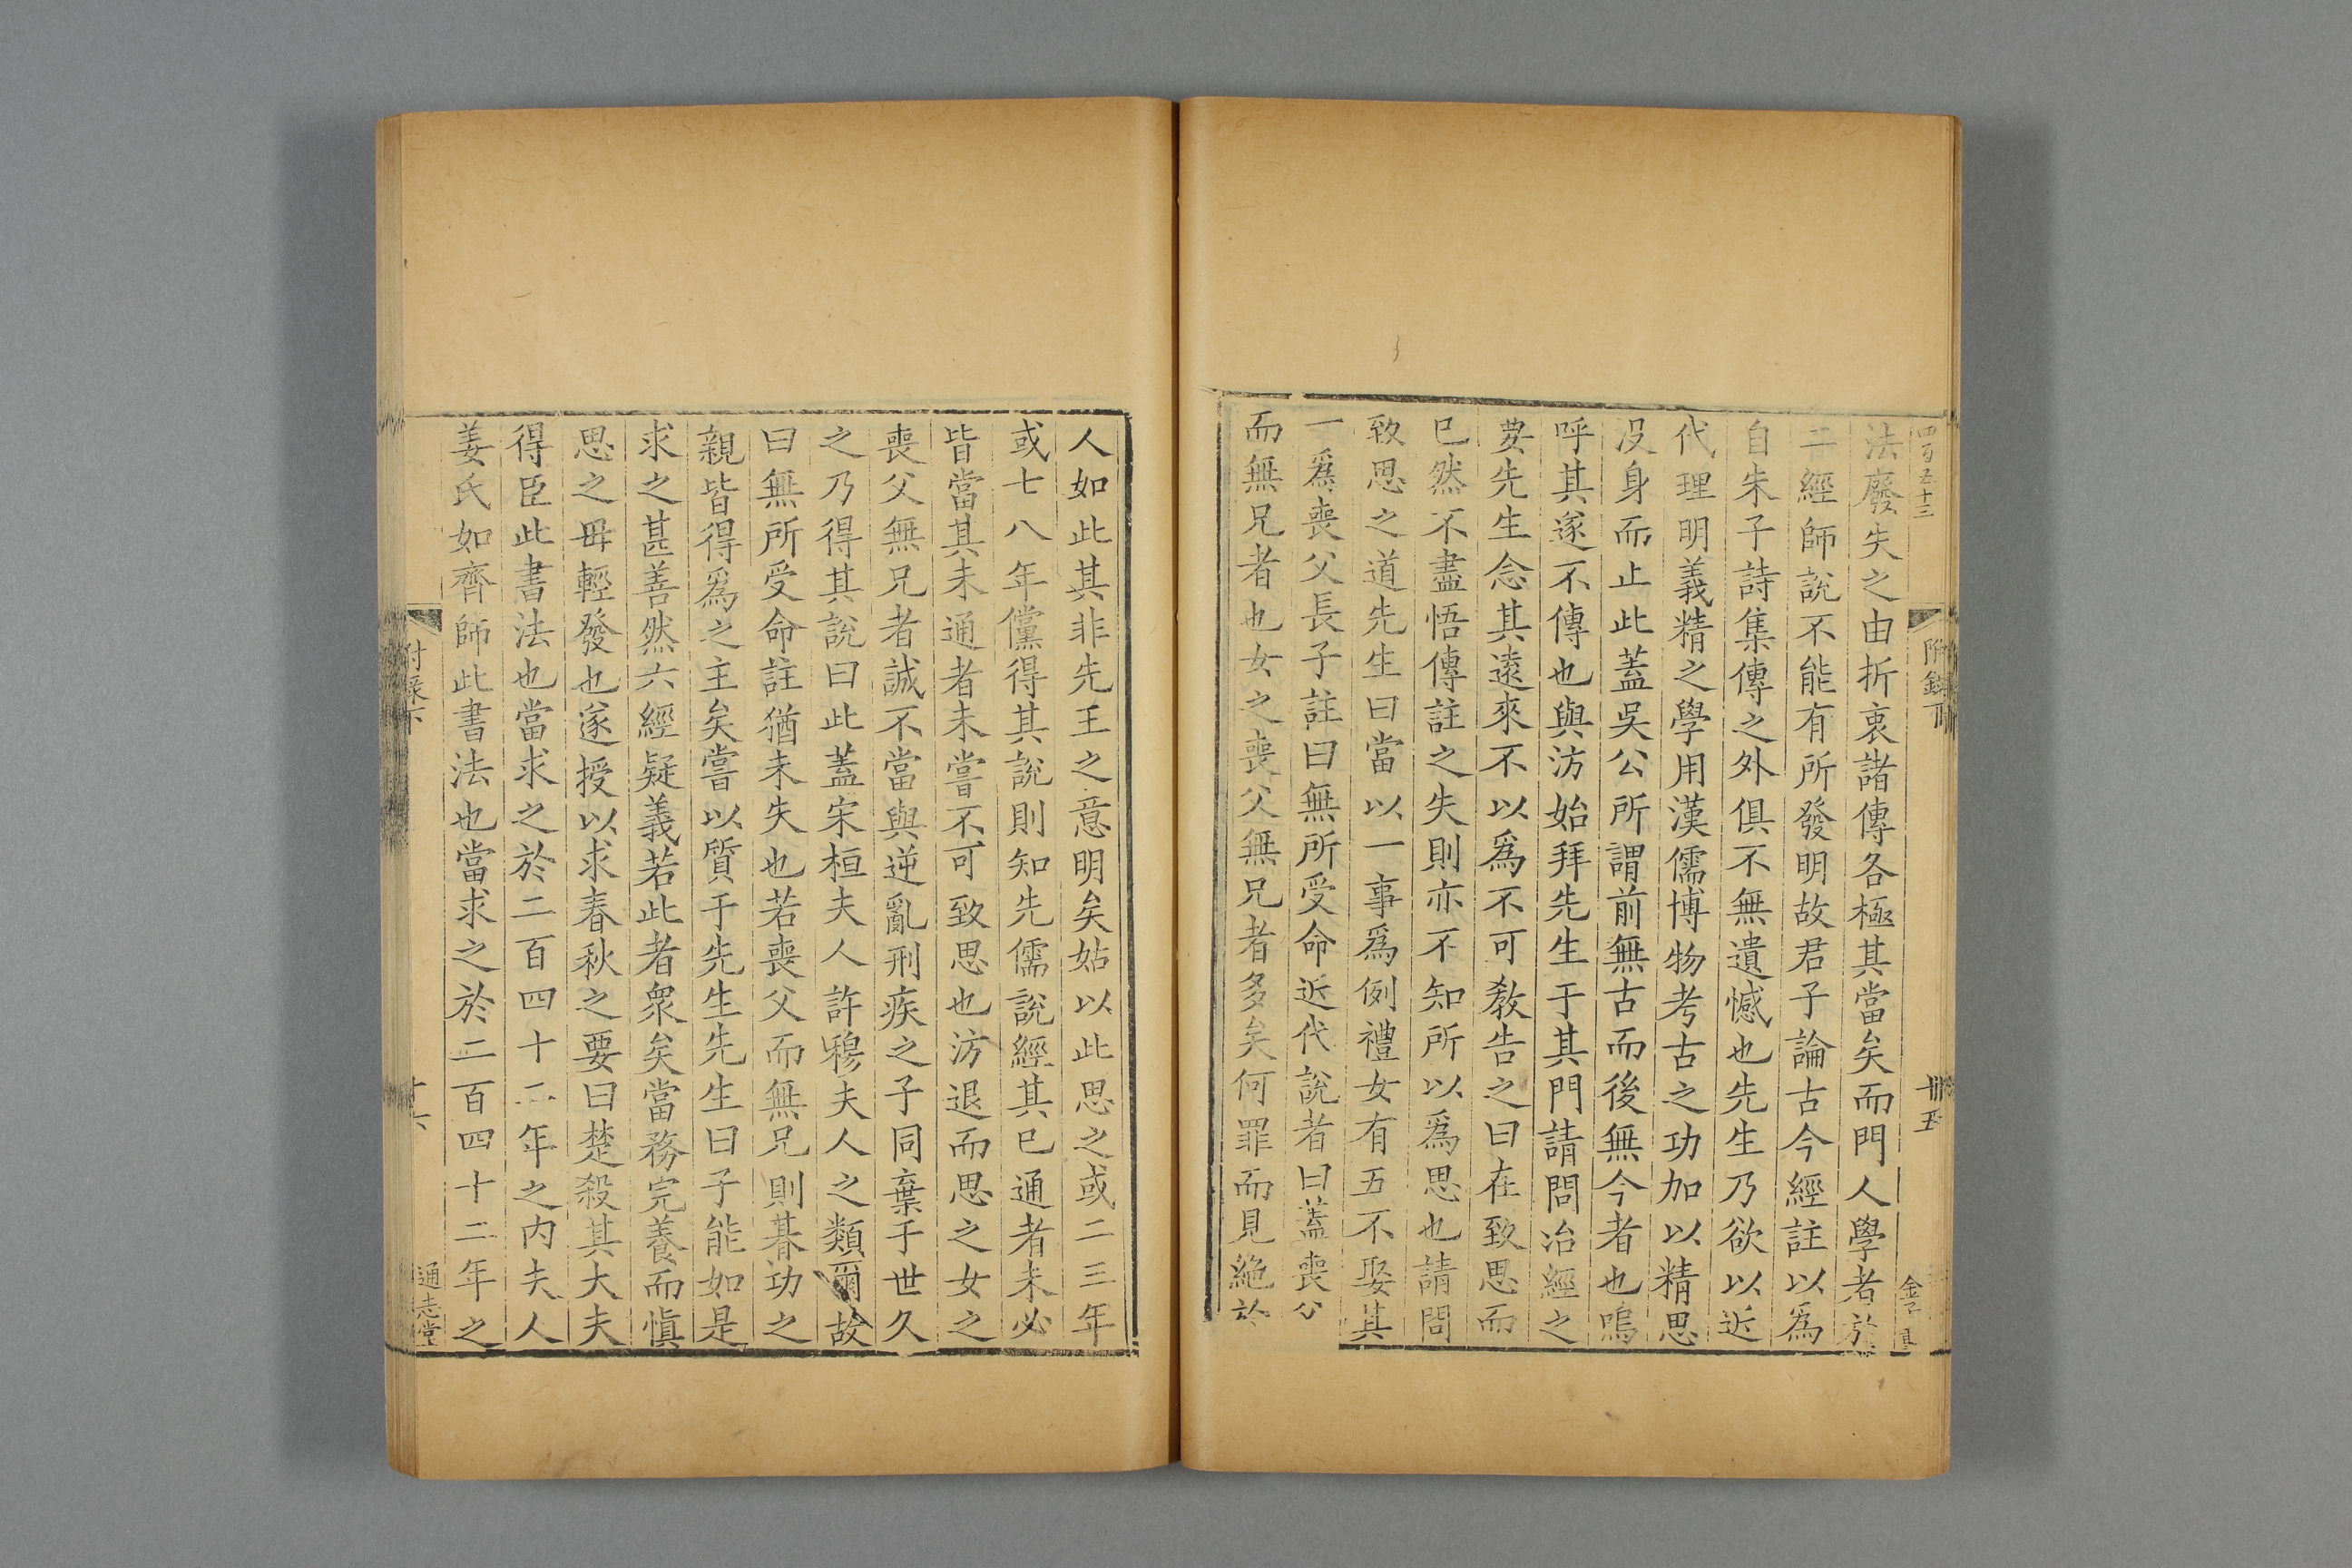 四百五十三
附錄下
卅五
法廢失之由折衷諸傳各極其當矣而門人學者於
二經師說不能有所發明故君子論古今經註以為
自朱子詩集傳之外俱不無遺憾也先生乃欲以近
代理明義精之學用漢儒博物考古之功加以精思
没身而止此蓋吳公所謂前無古而後無今者也嗚
呼其遂不傳也與汸始拜先生于其門請問治經之
要先生念其遠來不以為不可教告之曰在致思而
已然不盡悟傳註之失則亦不知所以為思也請問
致思之道先生曰當以一事為例禮女有五不娶其
一爲喪父長子註曰無所受命近代說者曰蓋喪父
而無兄者也女之喪父無兄者多矣何罪而見絶於
人如此其非先王之意明矣姑以此思之或二三年
或七八年儻得其說則知先儒說經其已通者未必
皆當其未通者未嘗不可致思也汸退而思之女之
喪父無兄者誠不當與逆亂刑疾之子同棄于世久
之乃得其說曰此蓋宋桓夫人許穆夫人之類爾故
曰無所受命註猶未失也若喪父而無兄則朞功之
親皆得爲之主矣嘗以質于先生先生曰子能如是
求之甚善然六經疑義若此者衆矣當務完養而慎
思之毋輕發也遂授以求春秋之要曰楚殺其大夫
得臣此書法也當求之於二百四十二年之内夫人
姜氏如齊師此書法也當求之於二百四十二年之
通志堂